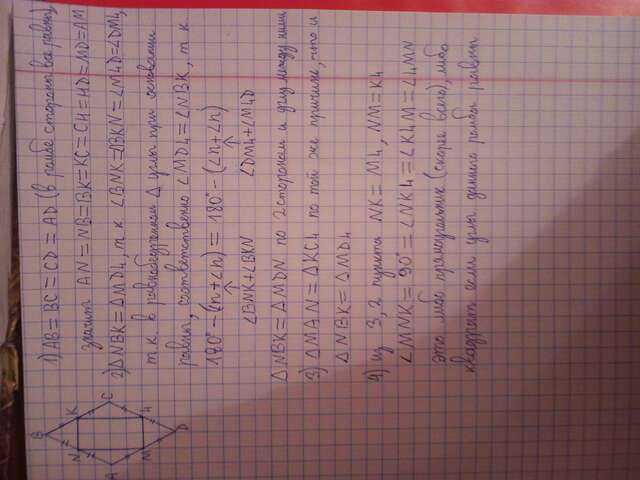 B
N K
A C
M L
D
1) AB = BC = CD = AD (в ромбе стороны все равны)
значит AN = NB = BK = KC = CH = HD = MD = AM
2) ΔNBK = ΔMDL, т.к. ∠BNK = ∠BKN = ∠MLD = ∠DML,
т.к. в равнобедренном Δ углы при основании
равны, соответственно ∠MDL = ∠NBK, т.к.
180° - (∠n + ∠n) = 180° - (∠n + ∠n)
∠BNK + ∠BKN ∠DML + ∠MLD
ΔNBK = ΔMDN по 2 сторонам и углу между ними
3) ΔMAN = ΔKCL по той же причине, что и
ΔNBK = ΔMDL
4) из 3, 2 пункта NK = ML, NM = KL
∠MNK = 90° = ∠NKL = ∠KLM = ∠LMN
это либо прямоугольник (скорее всего), либо
квадрат если углы данного ромба равны